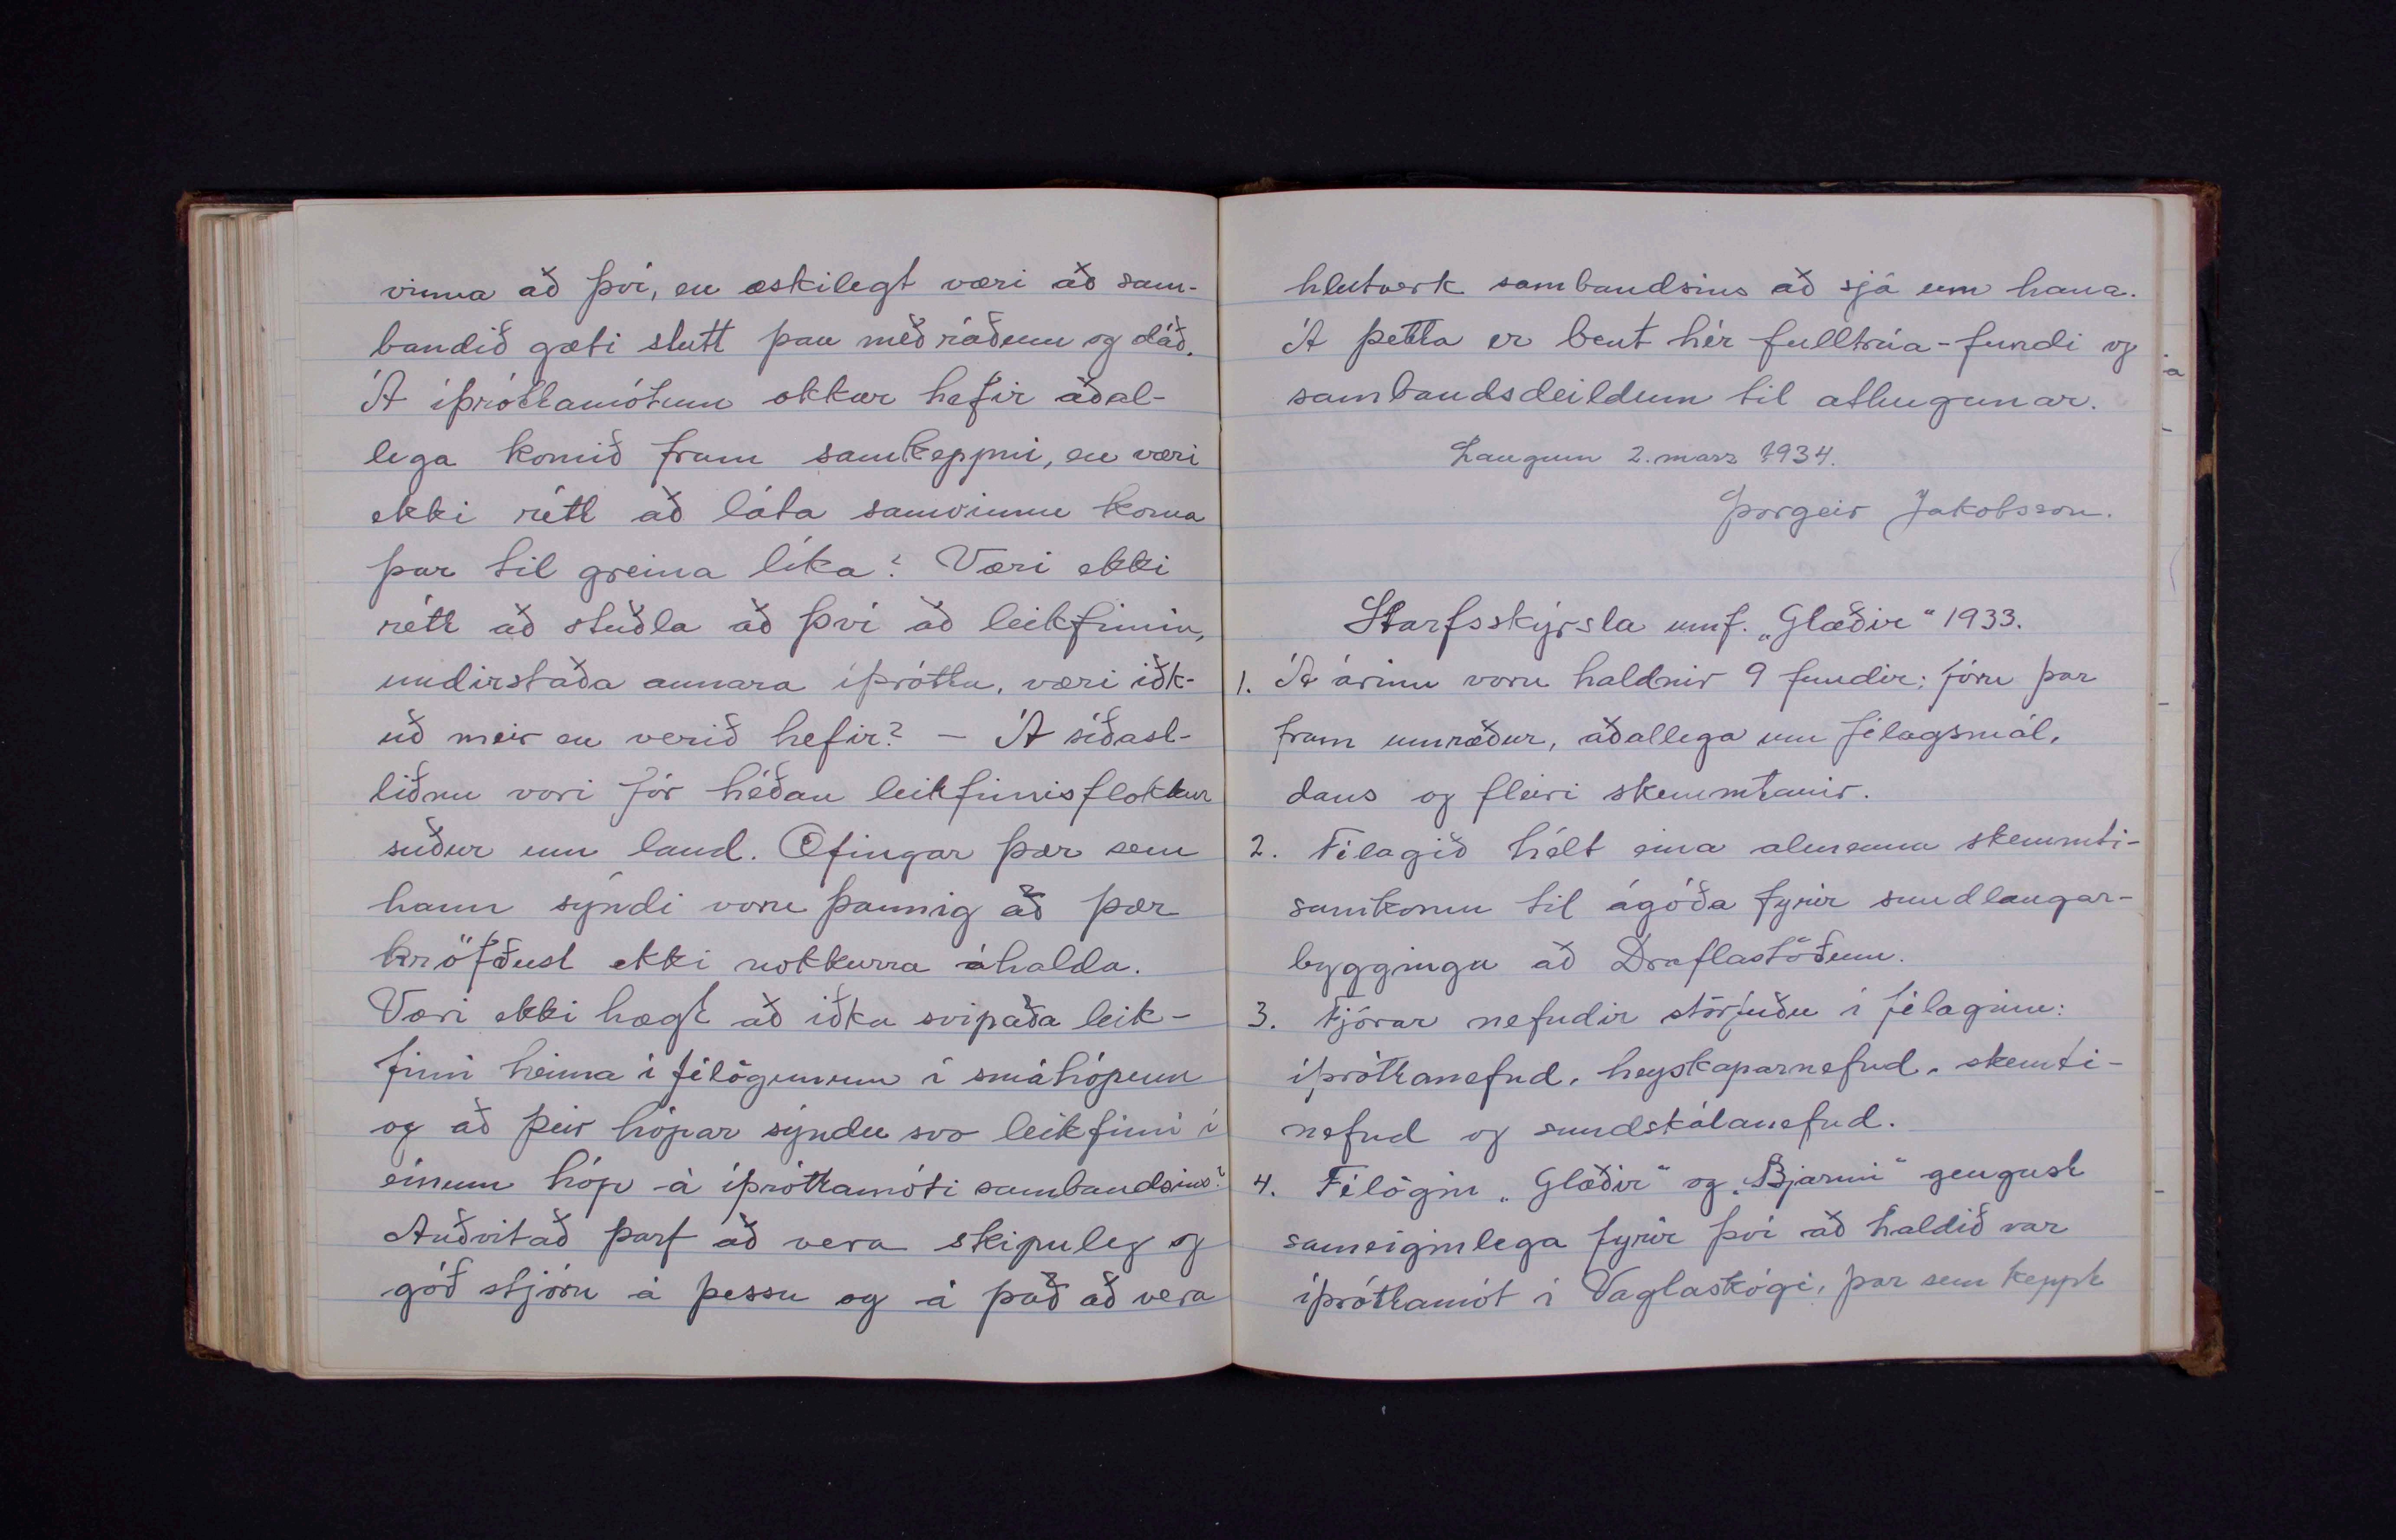 vinna að því, en æskilegt væri að sam-
bandið gæti stutt þau með ráðum og dáð.
Á íþróttamótum okkar hefir aðal-
lega komið fram samkeppni, en væri
ekki rétt að láta samvinnu koma
þar til greina líka? Væri ekki
rétt að stuðla að því að leikfimin,
undirstaða annara íþrótta, væri iðk-
uð meir en verið hefir? – Á síðast-
liðnu vori fór héðan leikfimisflokkur
suður um land. Æfingar þær sem
hann sýndi voru þannig að þær
kröfðust ekki nokkurra áhalda.
Væri ekki hægt að iðka svipaða leik-
fimi heima í félögunum í smáhópum
og að þeir hópar sýndu svo leikfimi í
einum hóp á íþróttamóti sambandsins?
Auðvitað þarf að vera skipuleg og
góð stjórn á þessu og á það að vera
hlutverk sambandsins að sjá um hana.
Á þetta er bent hér fulltrúa-fundi og
sambandsdeildum til athugunar.
Laugum 2. marz 1934.
Þorgeir Jakobsson.
Starfsskýrsla umf. „Glæðir" 1933.
1. Á árinu voru haldnir 9 fundir; fóru þar
fram umræður, aðallega um félagsmál,
dans og fleiri skemmtanir.
2. Félagið hélt eina almenna skemmti-
samkomu til ágóða fyrir sundlaugar-
byggingu að Draflastöðum.
3. Fjórar nefndir störfuðu í félaginu:
íþróttanefnd, heyskaparnefnd, skemti-
nefnd og sundskálanefnd.
4. Félögin „Glæðir" og „Bjarmi" gengust
sameiginlega fyrir því að haldið var
íþróttamót í Vaglaskógi, þar sem keppt